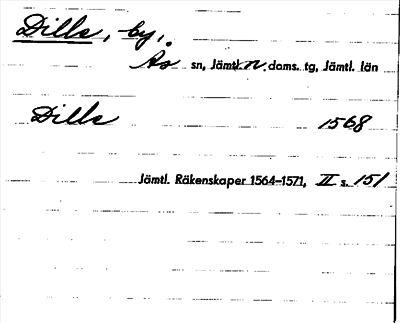 Dille, by,
Ås sn, Jämtl. n. doms. tg, Jämtl. län
Dille 1568
Jämtl. Räkenskaper 1564-1571, II s. 151